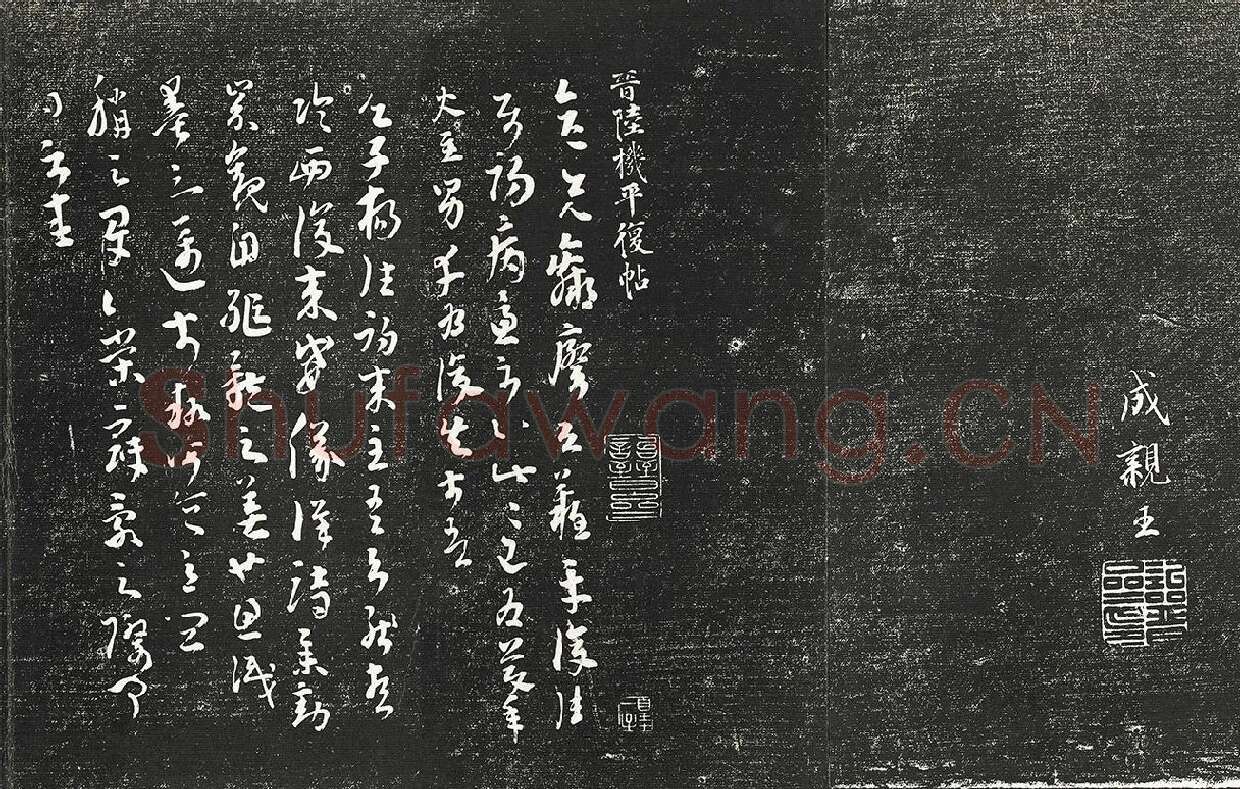 成親王
晉陸機平復帖
先羸瘵恐難平復往
屬初病慮不止此此已為慶承
男幸為復失前
子楊往初來主吾不能盡
臨西復來威儀詳跱舉動
成觀自軀體之美也思識
量之邁前
稱之夏伯榮寇亂之際聞
問不悉
Shufawang.CN